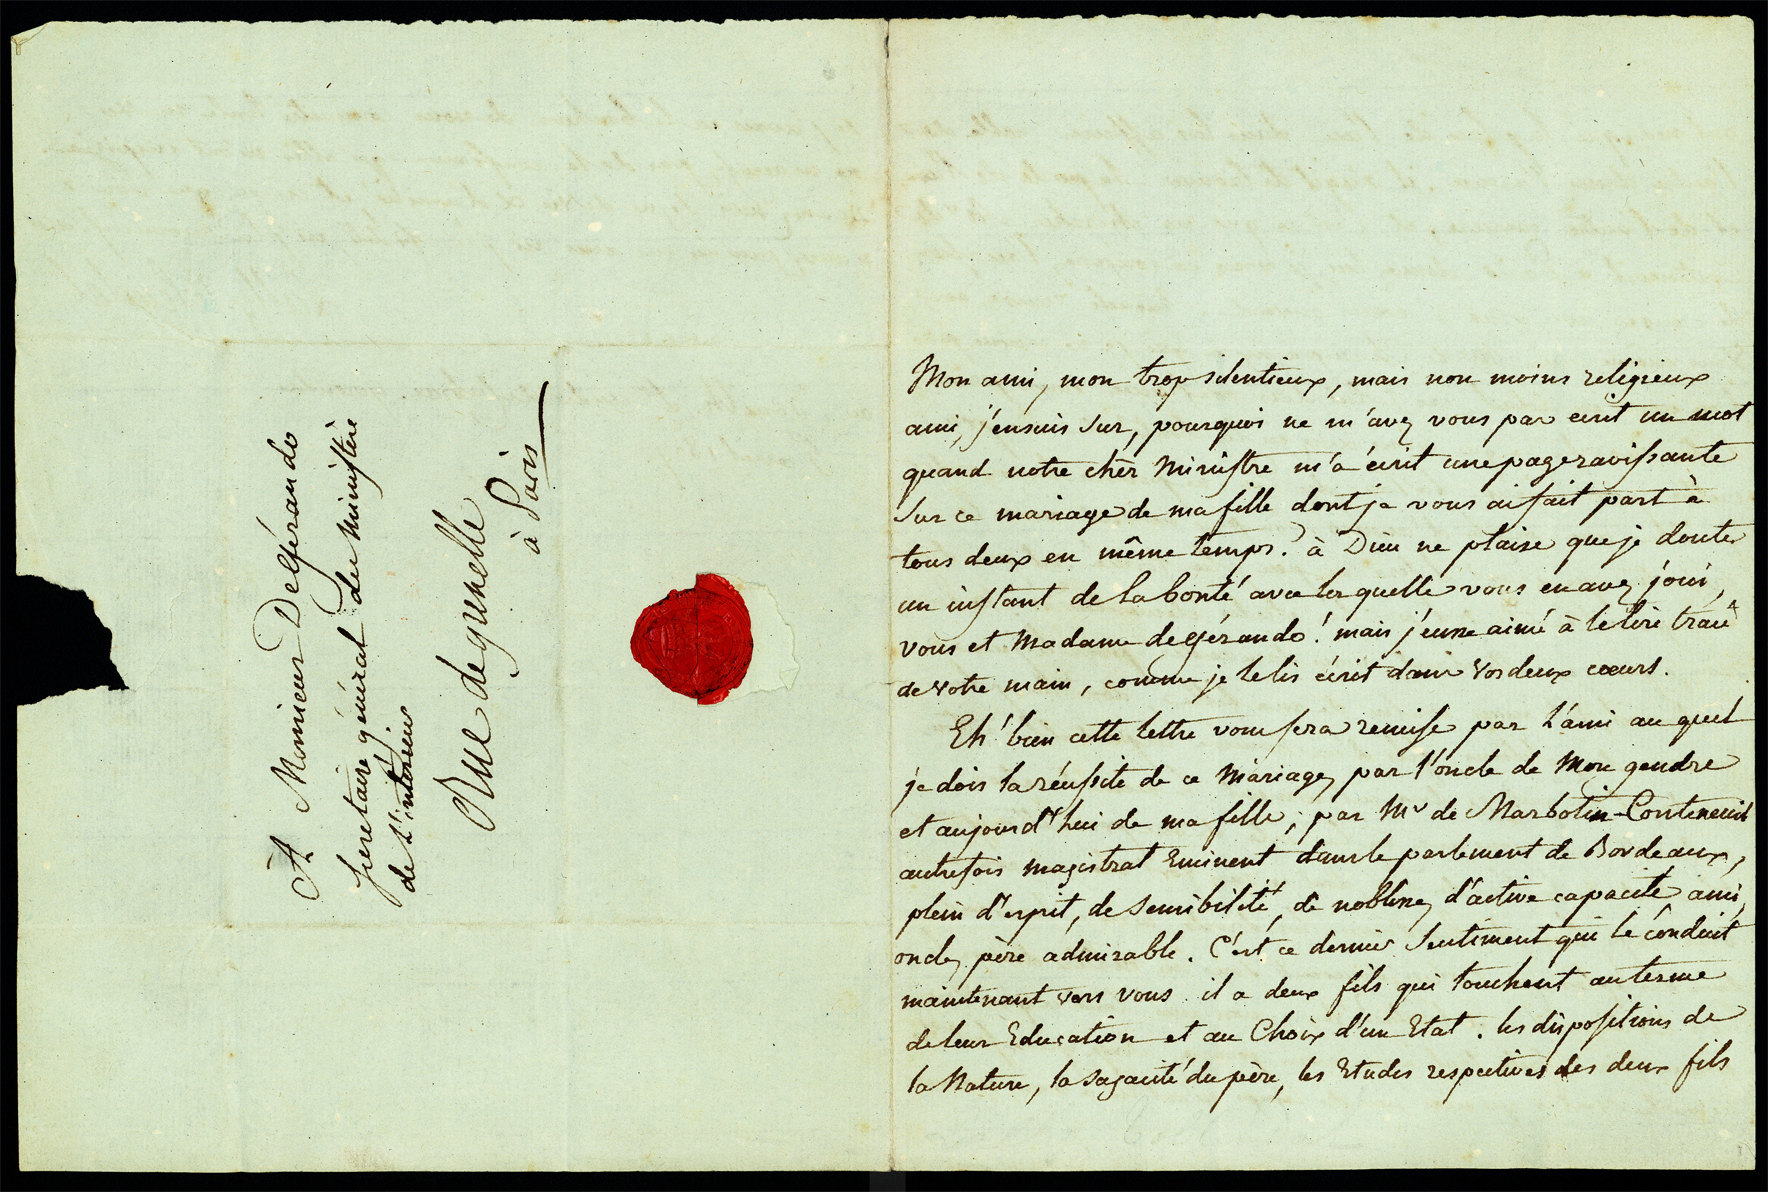 A Monsieur Degérando
secretaire général du Ministère
de L'interieur
Rue de grenelle
à Paris
Mon ami, mon trop silentieux, mais non moins religieux
ami, j'ensuis sur, pourquoi ne m'avez vous pas ecrit un mot
quand notre cher Ministre m'a écrit une page ravissante
sur ce mariage de ma fille dont je vous ai fait part à
tous deux en même temps? à Dieu ne plaise que je doute
un instant de la bonté avec laquelle vous en avez joui,
vous et Madame degérando! mais j'eusse aimé à le lire tracé
de votre main, comme je le lis écrit dans vos deux cœurs.
Eh' bien cette lettre vous sera remise par l'ami au quel
je dois la réussite de ce Mariage, par l'oncle de Mon gendre
et aujourd'hui de ma fille; par Mr de Marbotin-Conteneuil
autrefois magistrat Eminent dans le parlement de Bordeaux,
plein d'esprit, de sensibilité, de noblesse, d'active capacité ami,
oncle, père admirable. C'est ce dernier sentiment qui le conduit
maintenant vers vous. il a deux fils qui touchent au terme
de leur Education et au Choix d'un Etat. les dispositions de
la Nature, la sagacité du père, les Etudes respectives des deux fils